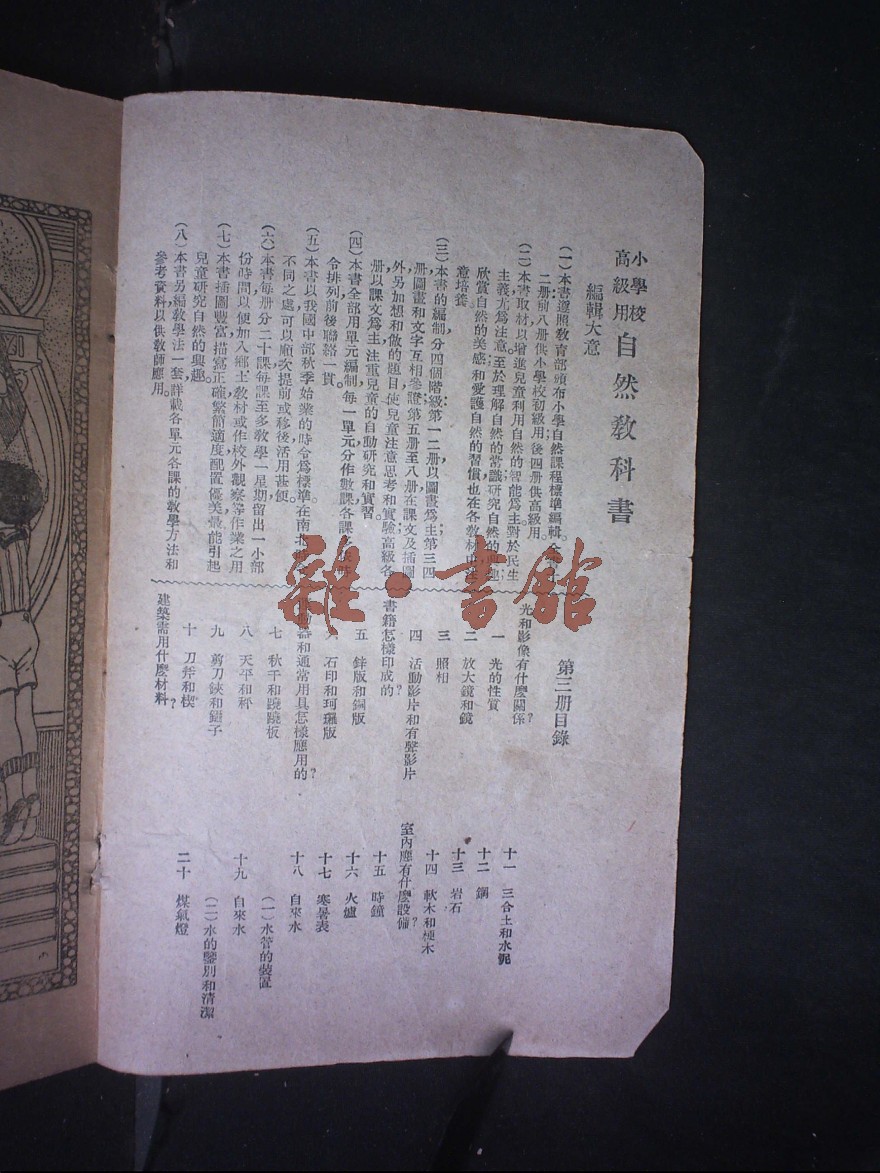 小學校
高級用
自然教科書
編輯大意
(一)本書遵照教育部頒布小學自然課程標準編輯。
二册前八册供小學校初級用後四册供高級用。
(二)本書取材以增進兒童利用自然的智能爲主對於民生
主義尤爲注意。至於理解自然的常識研究自然的興趣
欣賞自然的美感和愛護自然的習慣也在各教材中注
意培養。
(三)本書的編制分四個階級第一二册以圖畫爲主第三四
册圖畫和文字互相參證第五册至八册在課文及插圖
外另加想和做的題目使兒童注意思考和實驗高級各
册以課文爲主注重兒童的自動研究和實習。
(四)本書全部用單元編制每一單元分作數課各課
令排列前後聯絡一貫。
(五)本書以我國中部秋季始業的時令爲標準。在南北
不同之處可以順次提前或移後活用甚便。
(六)本書每册分二十課每課至多教學一星期留出一小部
份時間以便加入鄉土教材或作校外觀察等作業之用
(七)本書插圖豐富描寫正確繁簡適度配置優美最能引起
兒童研究自然的興趣。
(八)本書另編教學法一套詳載各單元各課的教學方法和
參考資料以供教師應用。
第三册目錄
光和影像有什麽關係?
一 光的性質
二 放大鏡和鏡
三 照相
四 活動影片和有聲影片
書籍怎樣印成的?
五 鋅版和銅版
六 石印和珂羅版
器和通常用具怎樣應用的?
七 秋千和蹺蹺板
八 天平和秤
九 剪刀鋏和鎚子
十 刀斧和楔
建築需用什麽材料?
十一 三合土和水泥
十二 鋼
十三 岩石
十四 軟木和硬木
室內應有什麽設備?
十五 時鐘
十六 火爐
十七 寒暑表
十八 自來水
(一)水管的裝置
十九 自來水
(二)水的鑒別和清潔
二十 煤氣燈
雜·書館